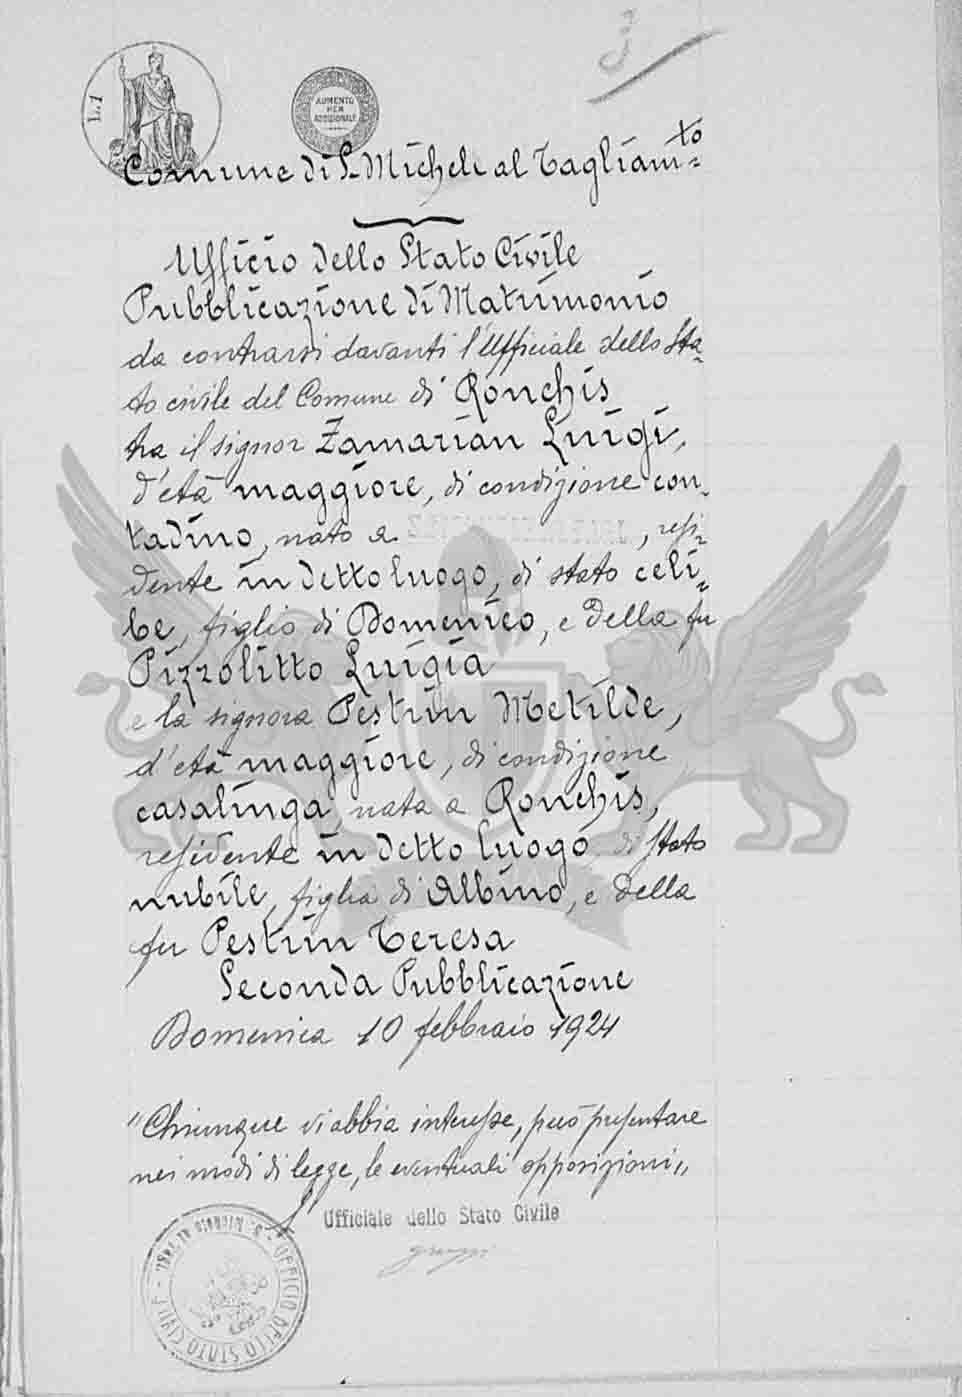 L. 1
AUMENTO
PER
ADDIZIONALE
Comune di S. Michele al Tagliam.to
Ufficio dello Stato Civile
Pubblicazione di Matrimonio
da contrarsi davanti l'Ufficiale dello Sta-
to civile del Comune di Ronchis
tra il signor Zamarian Luigi,
d'età maggiore, di condizione con-
tadino, nato a , resi-
dente in detto luogo, di stato celi-
be, figlio di Domenico, e della fu
Pizzolitto Luigia
e la signora Pestrin Metilde,
d'età maggiore, di condizione
casalinga nata a Ronchis,
residente in detto luogo, di stato
nubile, figlia di Albino, e della
fu Pestrin Teresa
Seconda Pubblicazione
Domenica 10 febbraio 1924
"Chiunque vi abbia interesse, può presentare
nei modi di legge, le eventuali opposizioni"
Ufficiale dello Stato Civile
UFFICIO DELLO STATO CIVILE